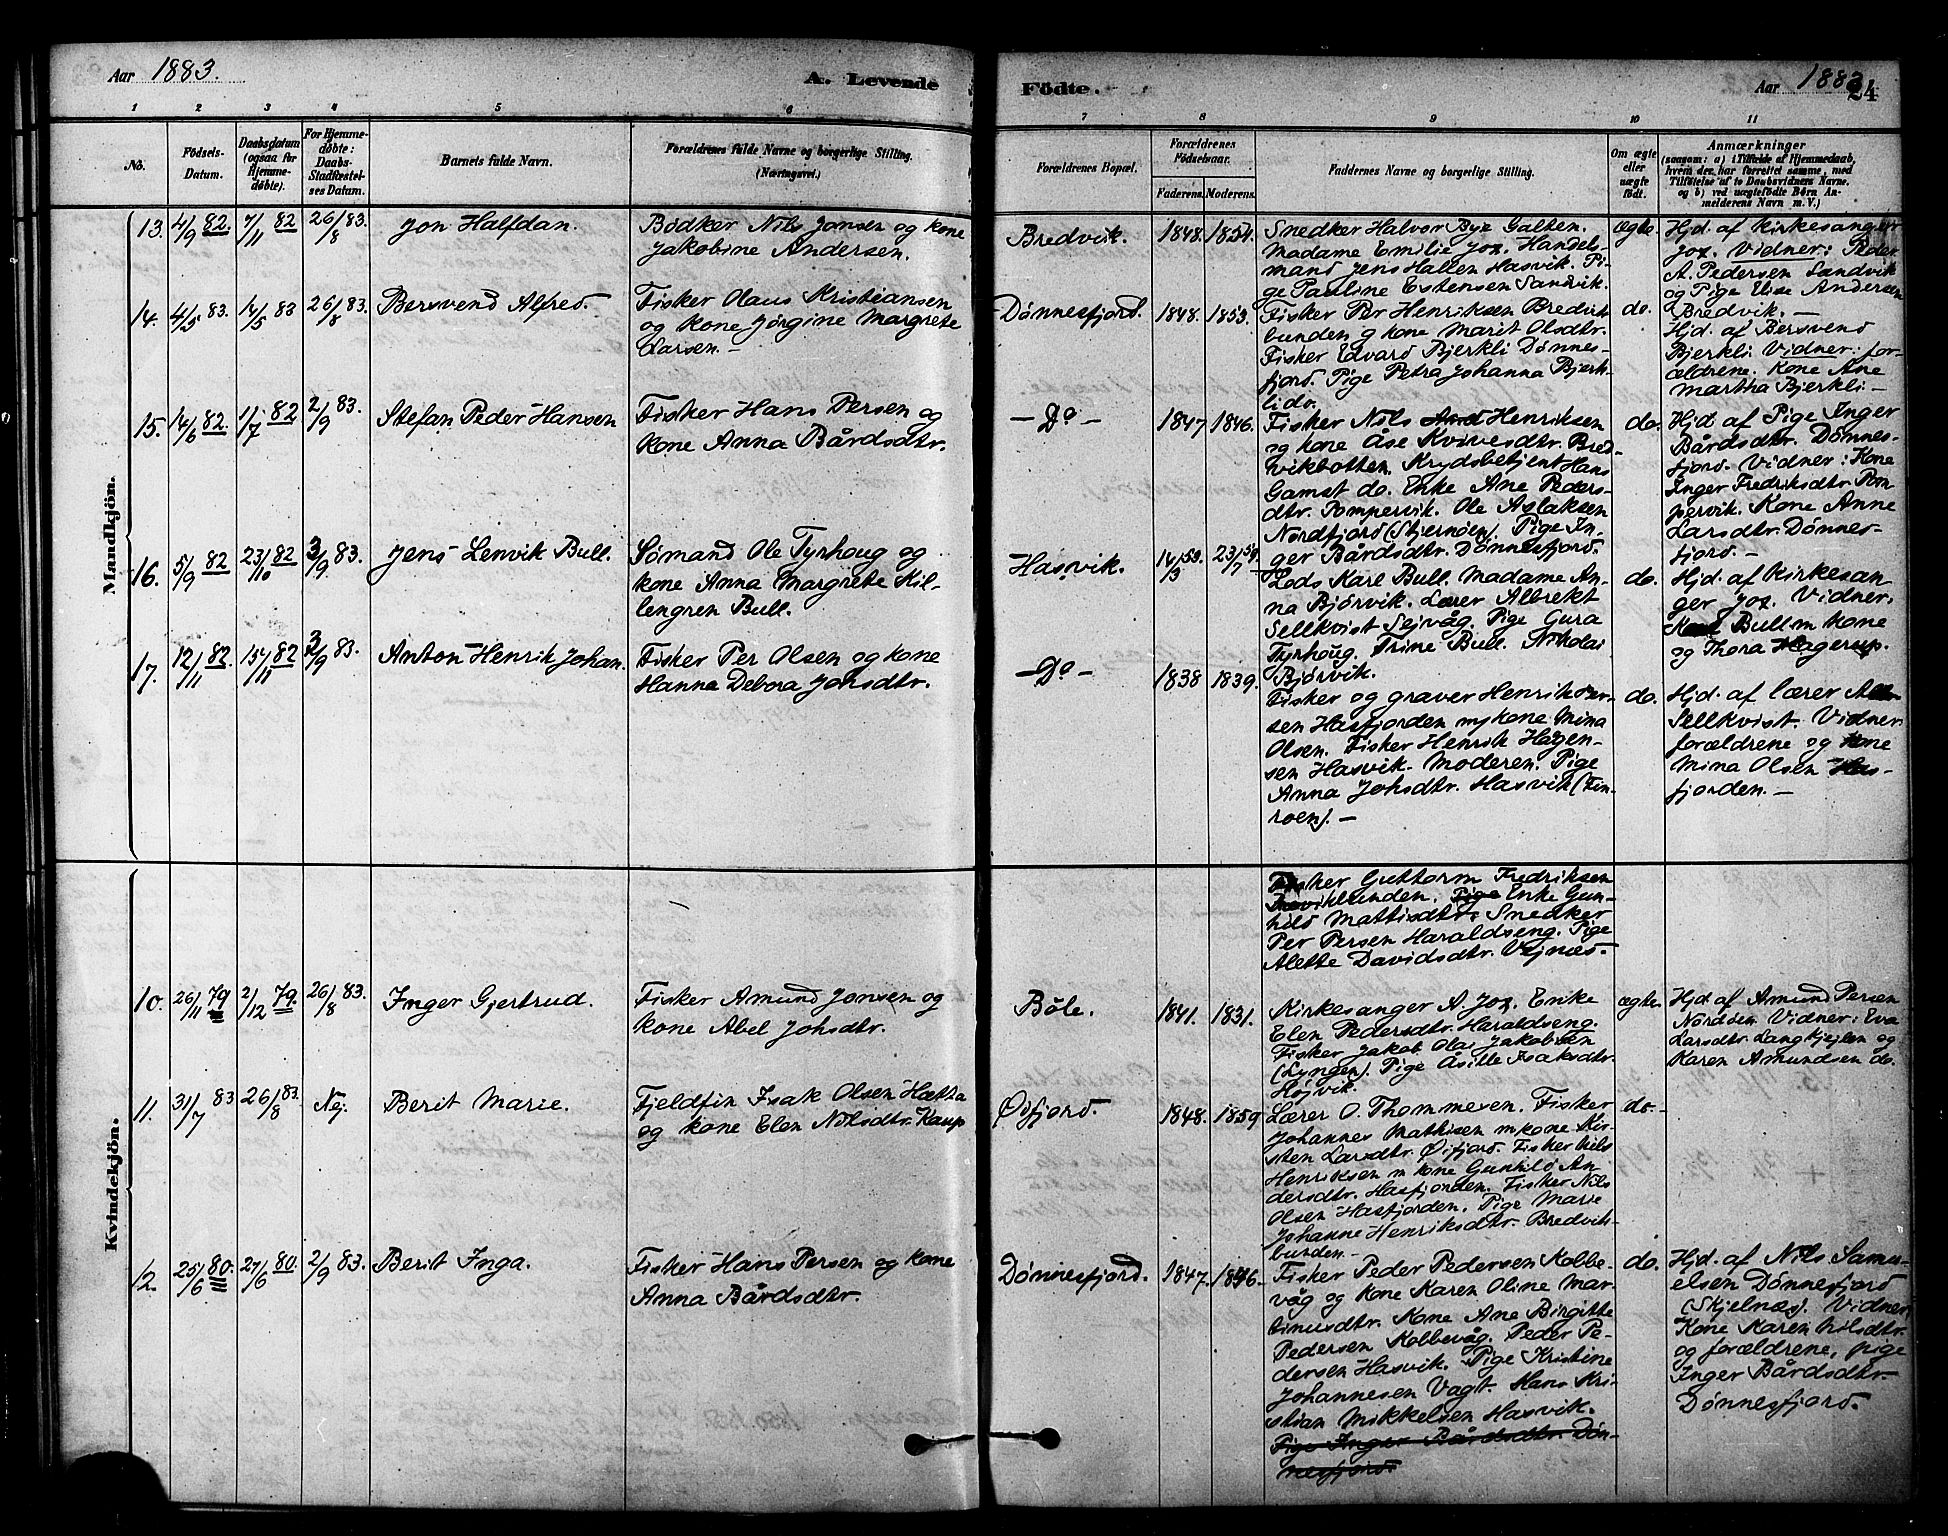 Aar 1883.
A. Levende
Födte.
Aar 1883
24
1 2 3 4 5 6
7 8 9 10 11
No.
Födsels-
Datum.
Daabsdatum
(ogsaa for
Hjemme-
døbte).
For Hjemme-
døbte:
Daabs-
Stadfæstel-
ses Datum.
Barnets fulde Navn.
Forældrenes fulde Navne og borgerlige Stilling.
(Næringsvei.)
Forældrenes Bopæl.
Forældrenes
Födselsaar.
Faderens. Moderens.
Faddernes Navne og borgerlige Stilling.
Om ægte
eller
uægte
födt.
Anmærkninger
(saasom: a) i Tilfælde af Hjemmedaab,
hvem der har forrettet samme, med
Tilföielse af to Daabsvidners Navne,
og b) ved uægtefödte Börn An-
melderens Navn m. V.)
Mandkjön.
13. 4/9 82. 7/11 82 26/8 83. Jon Halfdan.
Bødker Nils Jonsen og kone
Jakobine Andersen.
Bredvik. 1848. 1854.
Snedker Halvor Bye Galten.
Madame Emilie Jox. Handels-
mand Jens Hallen Hasvik. Pi-
ge Pauline Estensen Sandvik.
ægte.
Hjd. af Kirkesanger
Jox. Vidner: Peder
A. Pedersen Sandvik
og Pige Elise Andersen
Bredvik. —
14. 4/5 83. 14/5 83 26/8 83. Bersvend Alfred.
Fisker Olaus Kristiansen
og kone Jørgine Margrete
Larsen. —
Dønnesfjord. 1848. 1853.
Fisker Per Henriksen Bredvik
bunden og kone Marit Olsdtr.
Fisker Edvard Bjerkli Dønnes-
fjord. Pige Petra Johanna Bjerk-
li do.
do.
Hjd. af Bersvend
Bjerkli. Vidner: for-
ældrene. Kone Ane
Martha Bjerkli —
15. 14/6 82. 1/7 82 2/9 83. Stefan Peder Hansen
Fisker Hans Persen og
kone Anna Bårdsdtr.
— Do — 1847 1846.
Fisker Nils Henriksen
og kone Åse Kvivesdtr. Bred-
vikbotten. Krydsbetjent Hans
Gamst do. Enke Ane Peders-
dtr. Pompervik. Ole Aslaksen
Nordfjord (Stjernöen). Pige In-
ger Bårdsdtr. Dønnesfjord.
do.
Hjd af Pige Inger
Bårdsdtr. Dønnes-
fjord. Vidner: Kone
Inger Fredriksdtr Pom
pervik. Kone Anne
Larsdtr. Dønnes-
fjord. —
16. 5/9 82 23/10 82 3/9 83. Jens Lenvik Bull.
Sømand Ole Tyrhoug og
kone Anna Margrete Kil-
lengren Bull.
Hasvik. 14/3 53. 23/7 59.
Lods Karl Bull. Madame An-
na Bjørvik. Lærer Albrekt
Sellkvist Sejvåg. Pige Gura
Tyrhoug. Trine Bull. Nikolai
Bjørvik.
do.
Hjd. af Kirkesan-
ger Jox. Vidner:
Karl Bull m kone
og Thora Hagerup.
17. 12/11 82. 15/11 82 2/9 83. Anton Henrik Johan.
Fisker Per Olsen og kone
Hanna Debora Johsdtr.
— Do — 1838 1839.
Fisker og graver Henrik Per-
sen Hasfjorden m kone Mina
Olsen. Fisker Henrik Hagen-
sen Hasvik. Moderen. Pige
Anna Johsdtr. Hasvik (Fin-
roen). —
do.
Hjd. af lærer
Sellkvist. Vidner:
forældrene og kone
Mina Olsen Has-
fjorden. —
Kvindekjön.
Fisker Guttorm Fredriksen
bunden. Pige Enke Gun-
hild Mattisdtr. Snedker
Per Persen Haraldseng. Pige
Alette Davidsdtr. Vejnæs.
10. 26/11 79 2/12 79. 26/8 83. Inger Gjertrud.
Fisker Amund Jonsen og
kone Abel Johsdtr.
Bøle. 1841. 1831.
Kirkesanger A. Jox. Enke
Elen Pedersdtr. Haraldseng.
Fisker Jakob Olas Jakobsen
(Lyngen). Pige Åsille Isaksdtr.
Højvik.
ægte.
Hjd af Amund Persen
Nordsen Vidner: Eva
Larsdtr. Langkjejlen og
Karen Amundsen do.
11. 31/7 83 26/8 83. Nej. Berit Marie.
Fjeldfin Isak Olsen Hætta
og kone Elen Nilsdtr. Kaup
Øifjord. 1848. 1859
Lærer O. Thommesen. Fisker
Johannes Mathisen m kone Kir-
sten Larsdtr. Øifjord. Fisker Nils
Henriksen m kone Gunhild An-
dersdtr. Hasfjorden. Fisker Nils
Olsen Hasfjorden. Pige Marie
Johanne Henriksdtr. Bredvik-
bunden. —
do.
12. 25/6 80. 27/6 80. 2/9 83. Berit Inga.
Fisker Hans Persen og kone
Anna Bårdsdtr.
Dønnesfjord. 1847. 1846.
Fisker Peder Pedersen Kobbe-
våg og kone Karen Oline Mar-
tinusdtr. Kone Ane Birgitte
Pedersen Kobbevåg. Peder Pe-
dersen Hasvik. Pige Kristine
Johannesen Vagt. Hans Kri-
stian Mikkelsen Hasvik.
Pige Inger Bårdsdtr. Døn-
nesfjord.
do.
Hjd. af Nils Samu-
elsen Dønnesfjord
(Skjelnæs). Vidner
Kone Karen Nilsdtr.
og forældrene, pige
Inger Bårdsdtr.
Dønnesfjord.